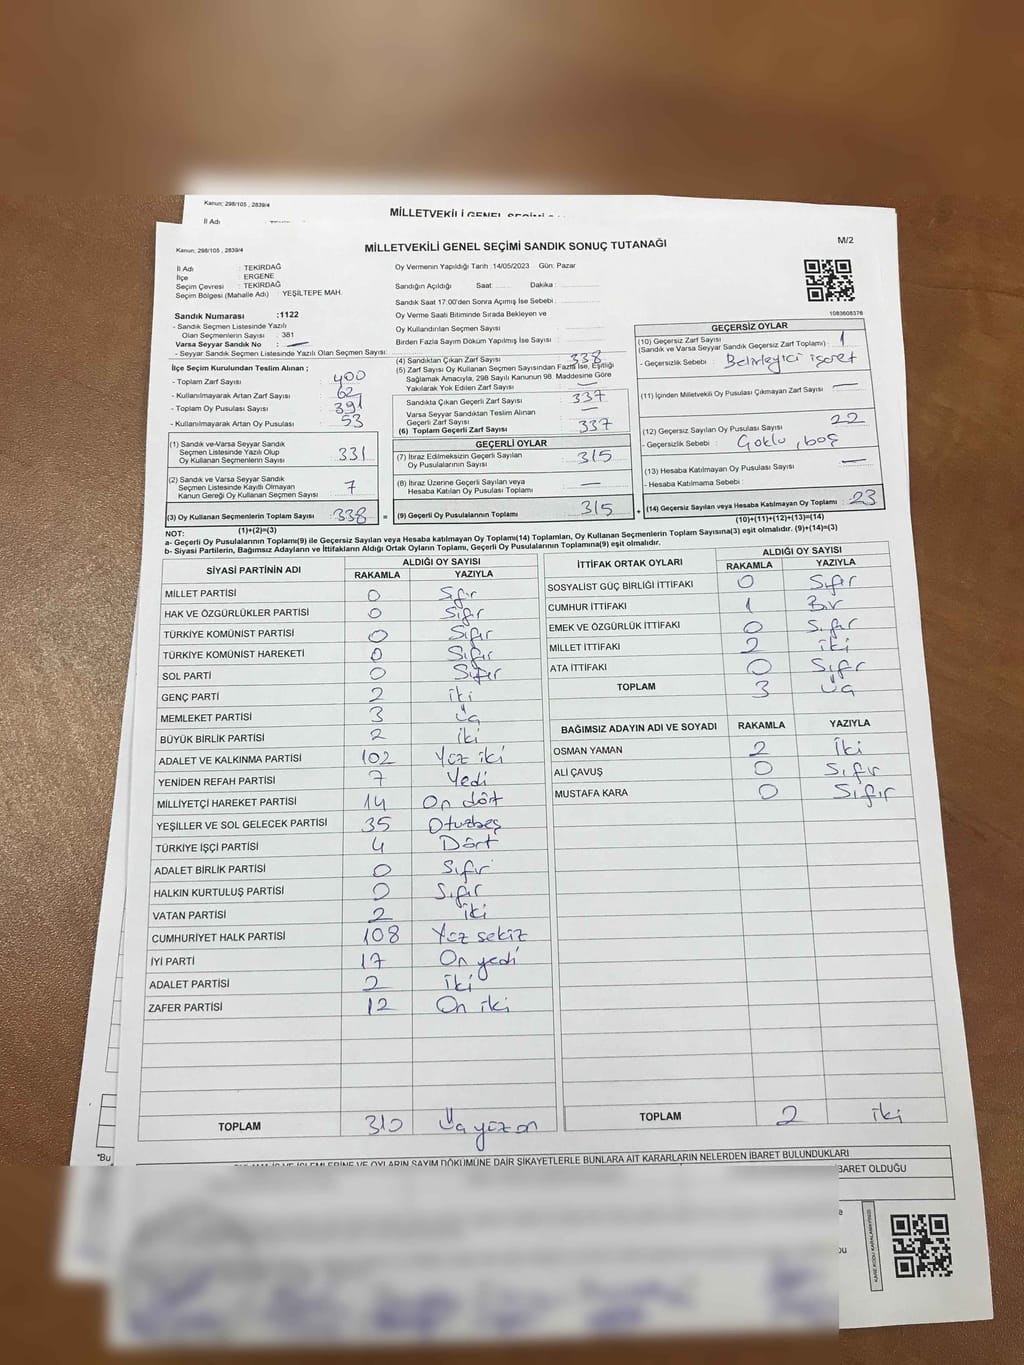 Kanun; 298/105 , 2839/4
MİLLETVEKİLİ GENEL
İl Adı
Kanun; 298/105 , 2839/4
MİLLETVEKİLİ GENEL SEÇİMİ SANDIK SONUÇ TUTANAĞI
M/2
İl Adı : TEKİRDAĞ
İlçe : ERGENE
Seçim Çevresi : TEKİRDAĞ
Seçim Bölgesi (Mahalle Adı) : YEŞİLTEPE MAH.
Sandık Numarası :1122
- Sandık Seçmen Listesinde Yazılı
Olan Seçmenlerin Sayısı : 381
Varsa Seyyar Sandık No : —
- Seyyar Sandık Seçmen Listesinde Yazılı Olan Seçmen Sayısı:
İlçe Seçim Kurulundan Teslim Alınan ;
- Toplam Zarf Sayısı : 400
- Kullanılmayarak Artan Zarf Sayısı : 62
- Toplam Oy Pusulası Sayısı : 391
- Kullanılmayarak Artan Oy Pusulası : 53
(1) Sandık ve Varsa Seyyar Sandık
Seçmen Listesinde Yazılı Olup
Oy Kullanan Seçmenlerin Sayısı : 331
(2) Sandık ve Varsa Seyyar Sandık
Seçmen Listesinde Kayıtlı Olmayan
Kanun Gereği Oy Kullanan Seçmen Sayısı : 7
(3) Oy Kullanan Seçmenlerin Toplam Sayısı : 338 =
(1)+(2)=(3)
Oy Vermenin Yapıldığı Tarih :14/05/2023 Gün: Pazar
Sandığın Açıldığı Saat: Dakika :
Sandık Saat 17:00'den Sonra Açımış İse Sebebi :
Oy Verme Saati Bitiminde Sırada Bekleyen ve
Oy Kullandırılan Seçmen Sayısı :
Birden Fazla Sayım Döküm Yapılmış İse Sayısı :
(4) Sandıktan Çıkan Zarf Sayısı : 338
(5) Zarf Sayısı Oy Kullanan Seçmen Sayısından Fazla İse, Eşitliği
Sağlamak Amacıyla, 298 Sayılı Kanunun 98. Maddesine Göre
Yakılarak Yok Edilen Zarf Sayısı : —
Sandıkta Çıkan Geçerli Zarf Sayısı : 337
Varsa Seyyar Sandıktan Teslim Alınan
Geçerli Zarf Sayısı : —
(6) Toplam Geçerli Zarf Sayısı : 337
GEÇERLİ OYLAR
(7) İtiraz Edilmeksizin Geçerli Sayılan
Oy Pusulalarının Sayısı : 315
(8) İtiraz Üzerine Geçerli Sayılan veya
Hesaba Katılan Oy Pusulası Toplamı : —
(9) Geçerli Oy Pusulalarının Toplamı : 315 +
1083608376
GEÇERSİZ OYLAR
(10) Geçersiz Zarf Sayısı
(Sandık ve Varsa Seyyar Sandık Geçersiz Zarf Toplamı) : 1
- Geçersizlik Sebebi : Belirleyici işaret
(11) İçinden Milletvekili Oy Pusulası Çıkmayan Zarf Sayısı : —
(12) Geçersiz Sayılan Oy Pusulası Sayısı : 22
- Geçersizlik Sebebi : Çoklu, boş
(13) Hesaba Katılmayan Oy Pusulası Sayısı : —
- Hesaba Katılmama Sebebi :
(14) Geçersiz Sayılan veya Hesaba Katılmayan Oy Toplamı : 23
(10)+(11)+(12)+(13)=(14)
NOT:
a- Geçerli Oy Pusulalarının Toplamı(9) ile Geçersiz Sayılan veya Hesaba katılmayan Oy Toplamı(14) Toplamları, Oy Kullanan Seçmenlerin Toplam Sayısına(3) eşit olmalıdır. (9)+(14)=(3)
b- Siyasi Partilerin, Bağımsız Adayların ve İttifakların Aldığı Ortak Oyların Toplamı, Geçerli Oy Pusulalarının Toplamına(9) eşit olmalıdır.
SİYASİ PARTİNİN ADI ALDIĞI OY SAYISI
RAKAMLA YAZIYLA
MİLLET PARTİSİ 0 Sıfır
HAK VE ÖZGÜRLÜKLER PARTİSİ 0 Sıfır
TÜRKİYE KOMÜNİST PARTİSİ 0 Sıfır
TÜRKİYE KOMÜNİST HAREKETİ 0 Sıfır
SOL PARTİ 0 Sıfır
GENÇ PARTİ 2 iki
MEMLEKET PARTİSİ 3 Üç
BÜYÜK BİRLİK PARTİSİ 2 iki
ADALET VE KALKINMA PARTİSİ 102 Yüz iki
YENİDEN REFAH PARTİSİ 7 Yedi
MİLLİYETÇİ HAREKET PARTİSİ 14 On dört
YEŞİLLER VE SOL GELECEK PARTİSİ 35 Otuzbeş
TÜRKİYE İŞÇİ PARTİSİ 4 Dört
ADALET BİRLİK PARTİSİ 0 Sıfır
HALKIN KURTULUŞ PARTİSİ 0 Sıfır
VATAN PARTİSİ 2 iki
CUMHURİYET HALK PARTİSİ 108 Yüz sekiz
İYİ PARTİ 17 On yedi
ADALET PARTİSİ 2 iki
ZAFER PARTİSİ 12 On iki
TOPLAM 310 Üçyüz on
İTTİFAK ORTAK OYLARI ALDIĞI OY SAYISI
RAKAMLA YAZIYLA
SOSYALİST GÜÇ BİRLİĞİ İTTİFAKI 0 Sıfır
CUMHUR İTTİFAKI 1 Bir
EMEK VE ÖZGÜRLÜK İTTİFAKI 0 Sıfır
MİLLET İTTİFAKI 2 iki
ATA İTTİFAKI 0 Sıfır
TOPLAM 3 Üç
BAĞIMSIZ ADAYIN ADI VE SOYADI RAKAMLA YAZIYLA
OSMAN YAMAN 2 İki
ALİ ÇAVUŞ 0 Sıfır
MUSTAFA KARA 0 Sıfır
TOPLAM 2 iki
İŞLEMLERİNE VE OYLARIN SAYIM DÖKÜMÜNE DAİR ŞİKAYETLERLE BUNLARA AİT KARARLARIN NELERDEN İBARET BULUNDUKLARI
İBARET OLDUĞU
*Bu